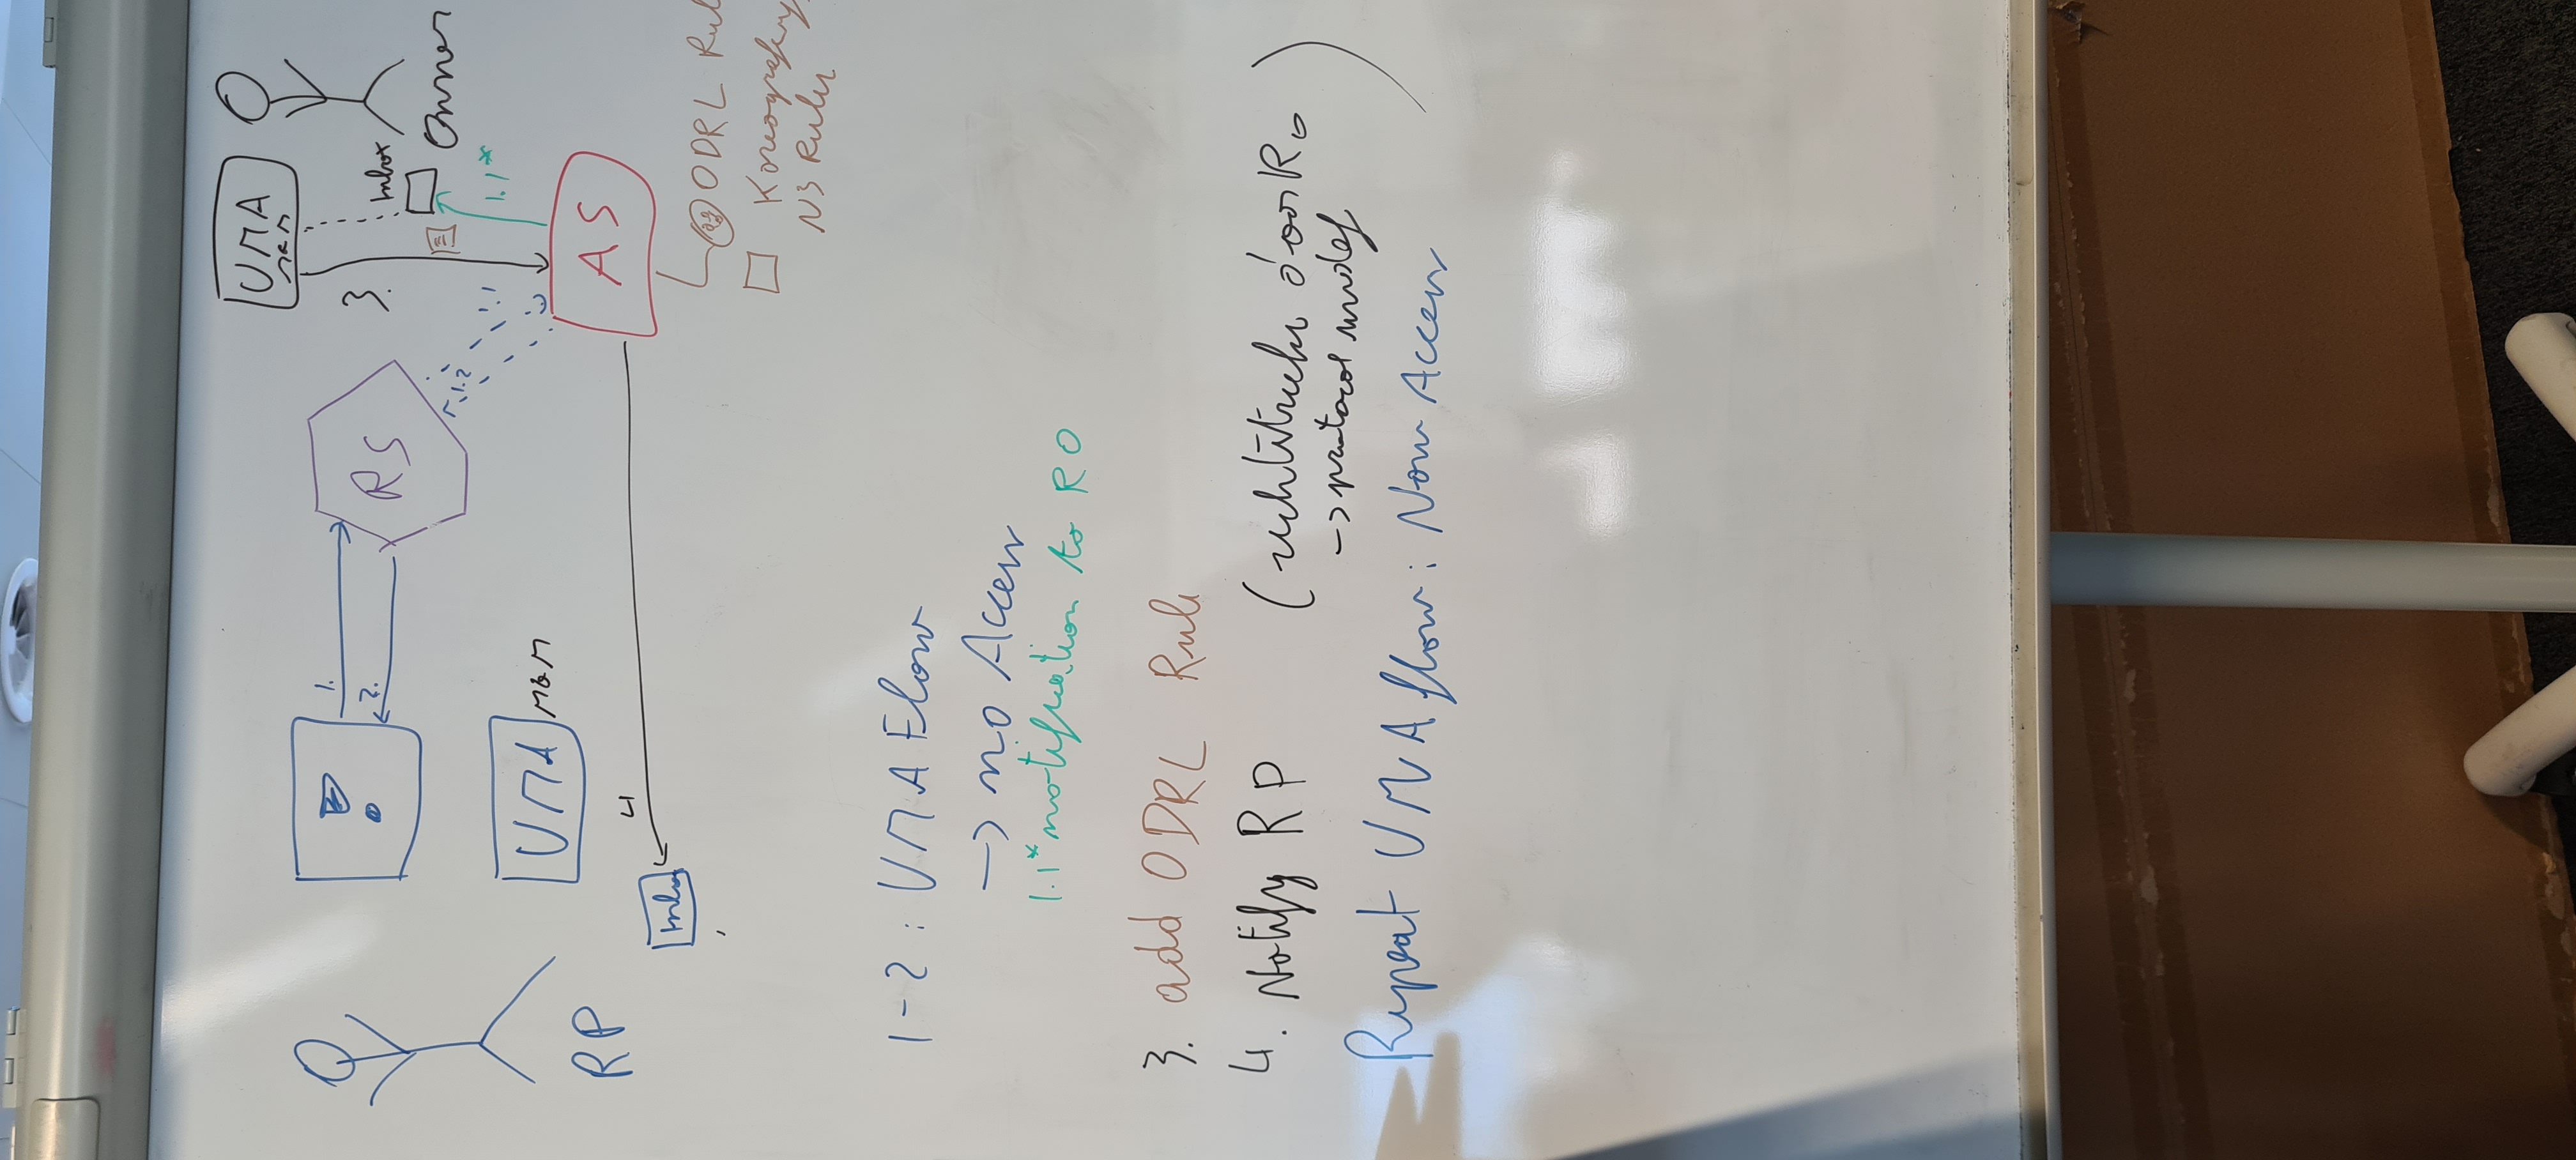 UMA
1.
2.
RS
3.
Inbox
Owner
1.2
1.1
1.1*
UMA
RP
AS
4
ODRL Rul
Koreografy
N3 Rules
1-2 : UMA Flow
→ no Access
1.1* notification to RO
3. add ODRL Rule
4. Notify RP ( door RO )
→ protocol
Repeat UMA flow : Now Access